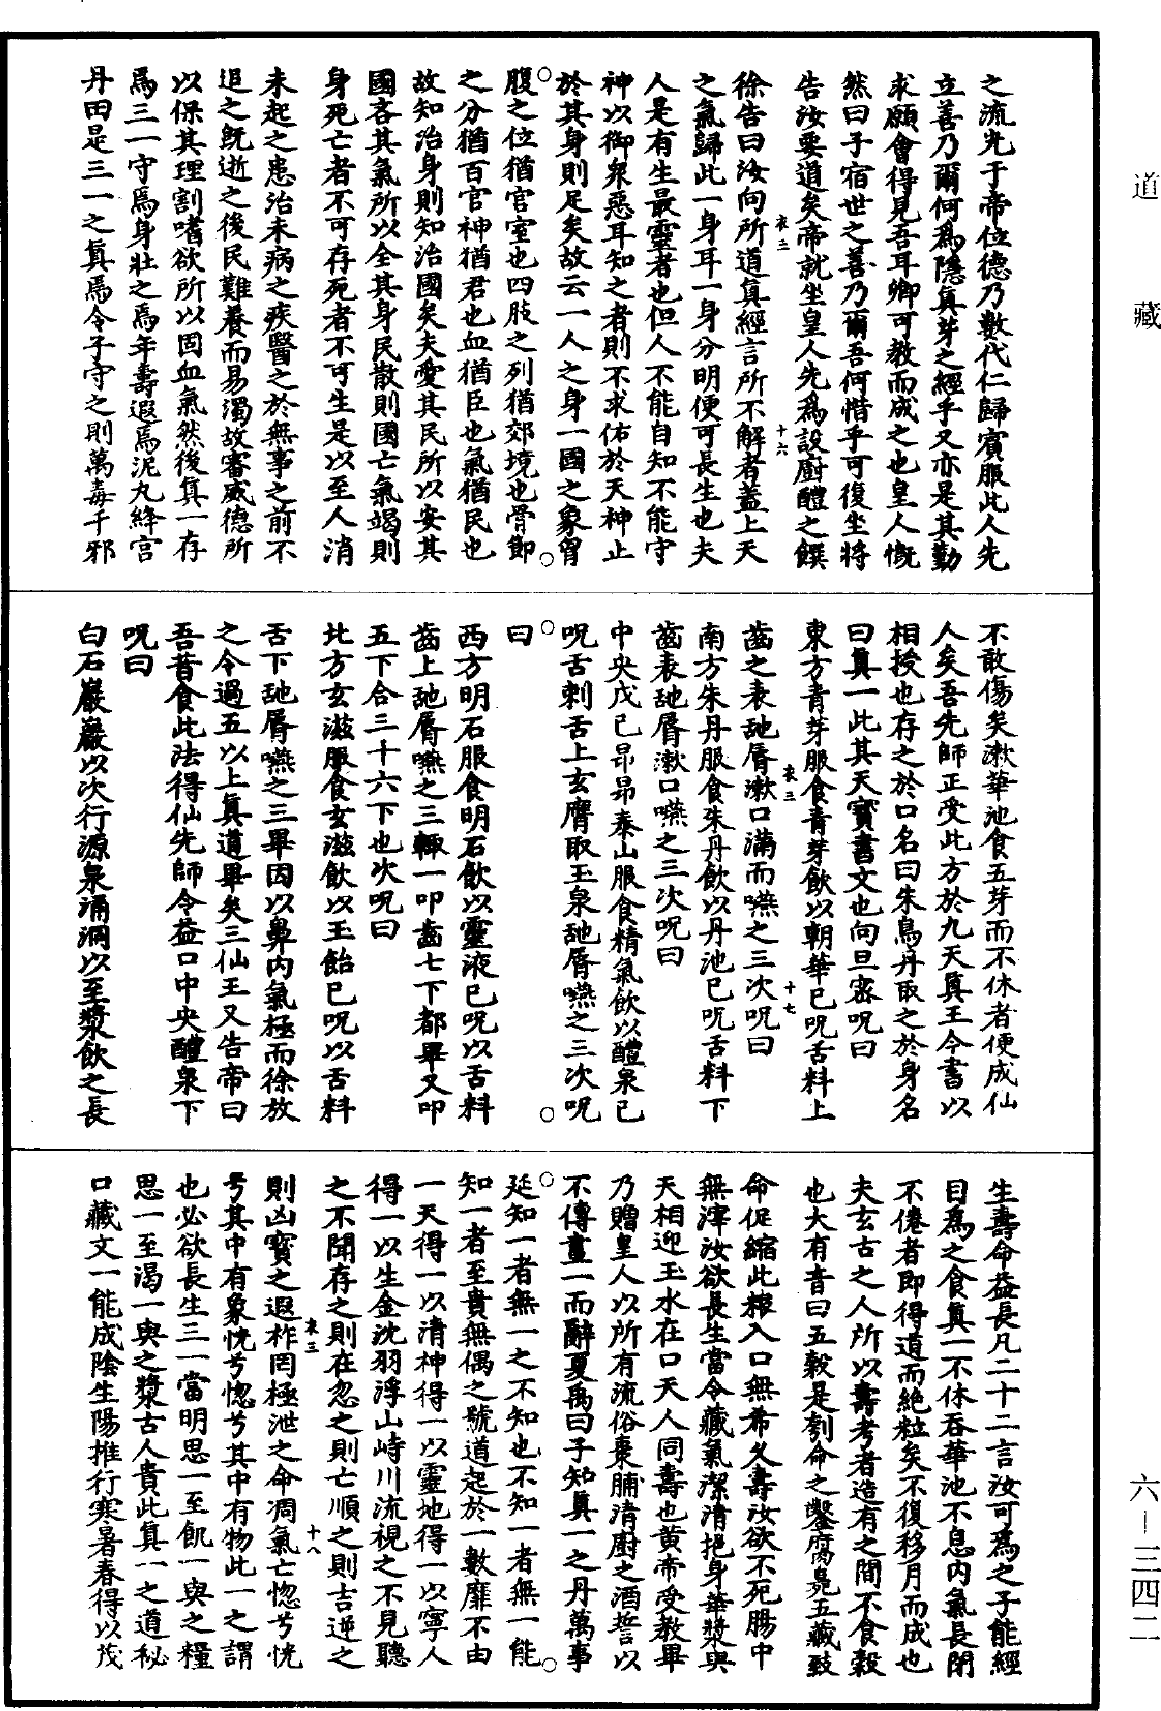 道藏
之流光于帝位德乃數代仁歸賓服此人先
立善乃爾何爲隱真芽之經乎又亦是其勤
求願會得見吾耳卿可教而成之也皇人慨
然曰子宿世之善乃爾吾何惜乎可復坐將
告汝要道矣帝就坐皇人先爲設廚醴之饌
衣三 十六
徐告曰汝向所道真經言所不解者蓋上天
之氣歸此一身耳一身分明便可長生也夫
人是有生最靈者也但人不能自知不能守
神以御衆惡耳知之者則不求佑於天神止
於其身則足矣故云一人之身一國之象胷
腹之位猶官室也四肢之列猶郊境也骨節
之分猶百官神猶君也血猶臣也氣猶民也
故知治身則知治國矣夫愛其民所以安其
國吝其氣所以全其身民散則國亡氣竭則
身死亡者不可存死者不可生是以至人消
未起之患治未病之疾醫之於無事之前不
追之旣逝之後民難養而易濁故審威德所
以保其理割嗜欲所以固血氣然後真一存
爲三一守爲身壯之爲年壽遐爲泥丸絳宫
丹田是三一之真爲令子守之則萬毒千邪
不敢傷矣漱華池食五芽而不休者便成仙
人矣吾先師正受此方於九天真王令書以
相授也存之於口名曰朱鳥丹取之於身名
曰真一此其天寶書文也向旦密呪曰
東方青芽服食青芽飲以朝華巳呪舌料上
衣三 十七
齒之表舐脣漱口滿而嚥之三次呪曰
南方朱丹服食朱丹飲以丹池巳呪舌料下
齒表舐脣漱口嚥之三次呪曰
中央戊巳昂昂泰山服食精氣飲以醴泉巳
呪舌刺舌上玄膺取玉泉舐脣嚥之三次呪
曰
西方明石服食明石飲以靈液巳呪以舌料
齒上舐脣嚥之三輙一叩齒七下都畢又叩
五下合三十六下也次呪曰
北方玄滋服食玄滋飲以玉飴巳呪以舌料
舌下舐脣嚥之三畢因以鼻内氣極而徐放
之令過五以上真道畢矣三仙王又告帝曰
吾昔食此法得仙先師令益口中央醴泉下
呪曰
白石巖巖以次行源泉涌洞以至漿飲之長
生壽命益長凡二十二言汝可爲之子能經
目爲之食真一不休吞華池不息内氣長閉
不倦者即得道而絶粒矣不復移月而成也
夫玄古之人所以壽考者造有之間不食穀
也大有音曰五穀是刳命之鑿腐臰五藏致
命促縮此糧入口無希久壽汝欲不死腸中
無滓汝欲長生當令藏氣潔清挹身華漿與
天相迎玉水在口天人同壽也黄帝受教畢
乃贈皇人以所有流俗棗脯清廚之酒誓以
不傳畫一而辭夏禹曰子知真一之丹萬事
延知一者無一之不知也不知一者無一能
知一者至貴無偶之號道起於一數靡不由
一天得一以清神得一以靈地得一以寧人
得一以生金沈羽浮山峙川流視之不見聽
之不聞存之則在忽之則亡順之則吉逆之
衣三 十八
則凶寶之遐柞罔極泄之命凋氣亡惚兮恍
兮其中有象恍兮惚兮其中有物此一之謂
也必欲長生三一當明思一至飢一與之糧
思一至渴一與之漿古人貴此真一之道祕
口藏文一能成陰生陽推行寒暑春得以茂
六—三四二